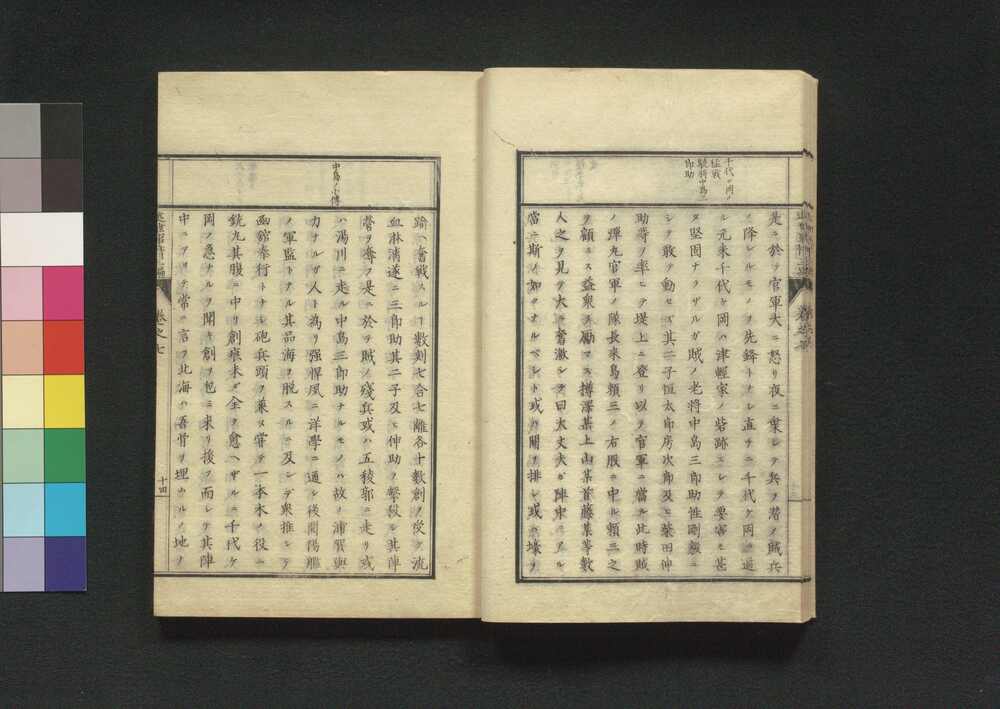 千代ヶ岡ノ
猛戦
賊将中島三
郎助
是ニ於テ官軍大ニ怒リ夜ニ乗シテ兵ヲ潜メ賊兵
ノ降レルモノヲ先鋒トナシ直チニ千代ケ岡ニ逼
ル元来千代ヶ岡ハ津軽家ノ砦跡ニシテ要害モ甚
タ堅固ナラザルガ賊ノ老将中島三郎助性剛毅ニ
シテ敢テ動セズ其二子恒太郎房次郎及ヒ柴田伸
助等ヲ率ヒテ堤上ニ登リ以テ官軍ニ當ル此時賊
ノ弾丸官軍ノ隊長来島頼三ノ右股ニ中ル頼三之
ヲ顧ミス益衆ヲ励マス搏澤某上山某首藤某等数
人之ヲ見テ大ニ奮激シテ曰大丈夫ガ陣中ニアル
當ニ斯ノ如クナルベシト或ハ関ヲ排シ或ハ壕ヲ
中島ノ小傳
踰ヘ奮戦スルコト数刻七合七離各十数創ヲ受ケ流
血淋漓遂ニ三郎助其二子及ヒ伸助ヲ撃殺シ其陣
営ヲ奪フ是ニ於テ賊ノ残兵或ハ五稜郭ニ走リ或
ハ湯川ニ走ル中島三郎助ナルモノハ故ノ浦賀與
力ナルガ人ト為リ强悍夙ニ洋學ニ通シ後開陽艦
ノ軍監トナル其品海ヲ脱スルニ及ンデ衆推シテ
函館奉行トナシ砲兵頭ヲ兼ヌ甞テ一本木ノ役ニ
銃丸其腹ニ中リ創痕未ダ全ク愈ヘザルニ千代ケ
岡ノ急ナルヲ聞キ創ヲ包ミ来リ援フ而シテ其陣
中ニアリテ常ニ言フ北海ハ吾骨ヲ埋ムルノ地ナ
卷之七
十四